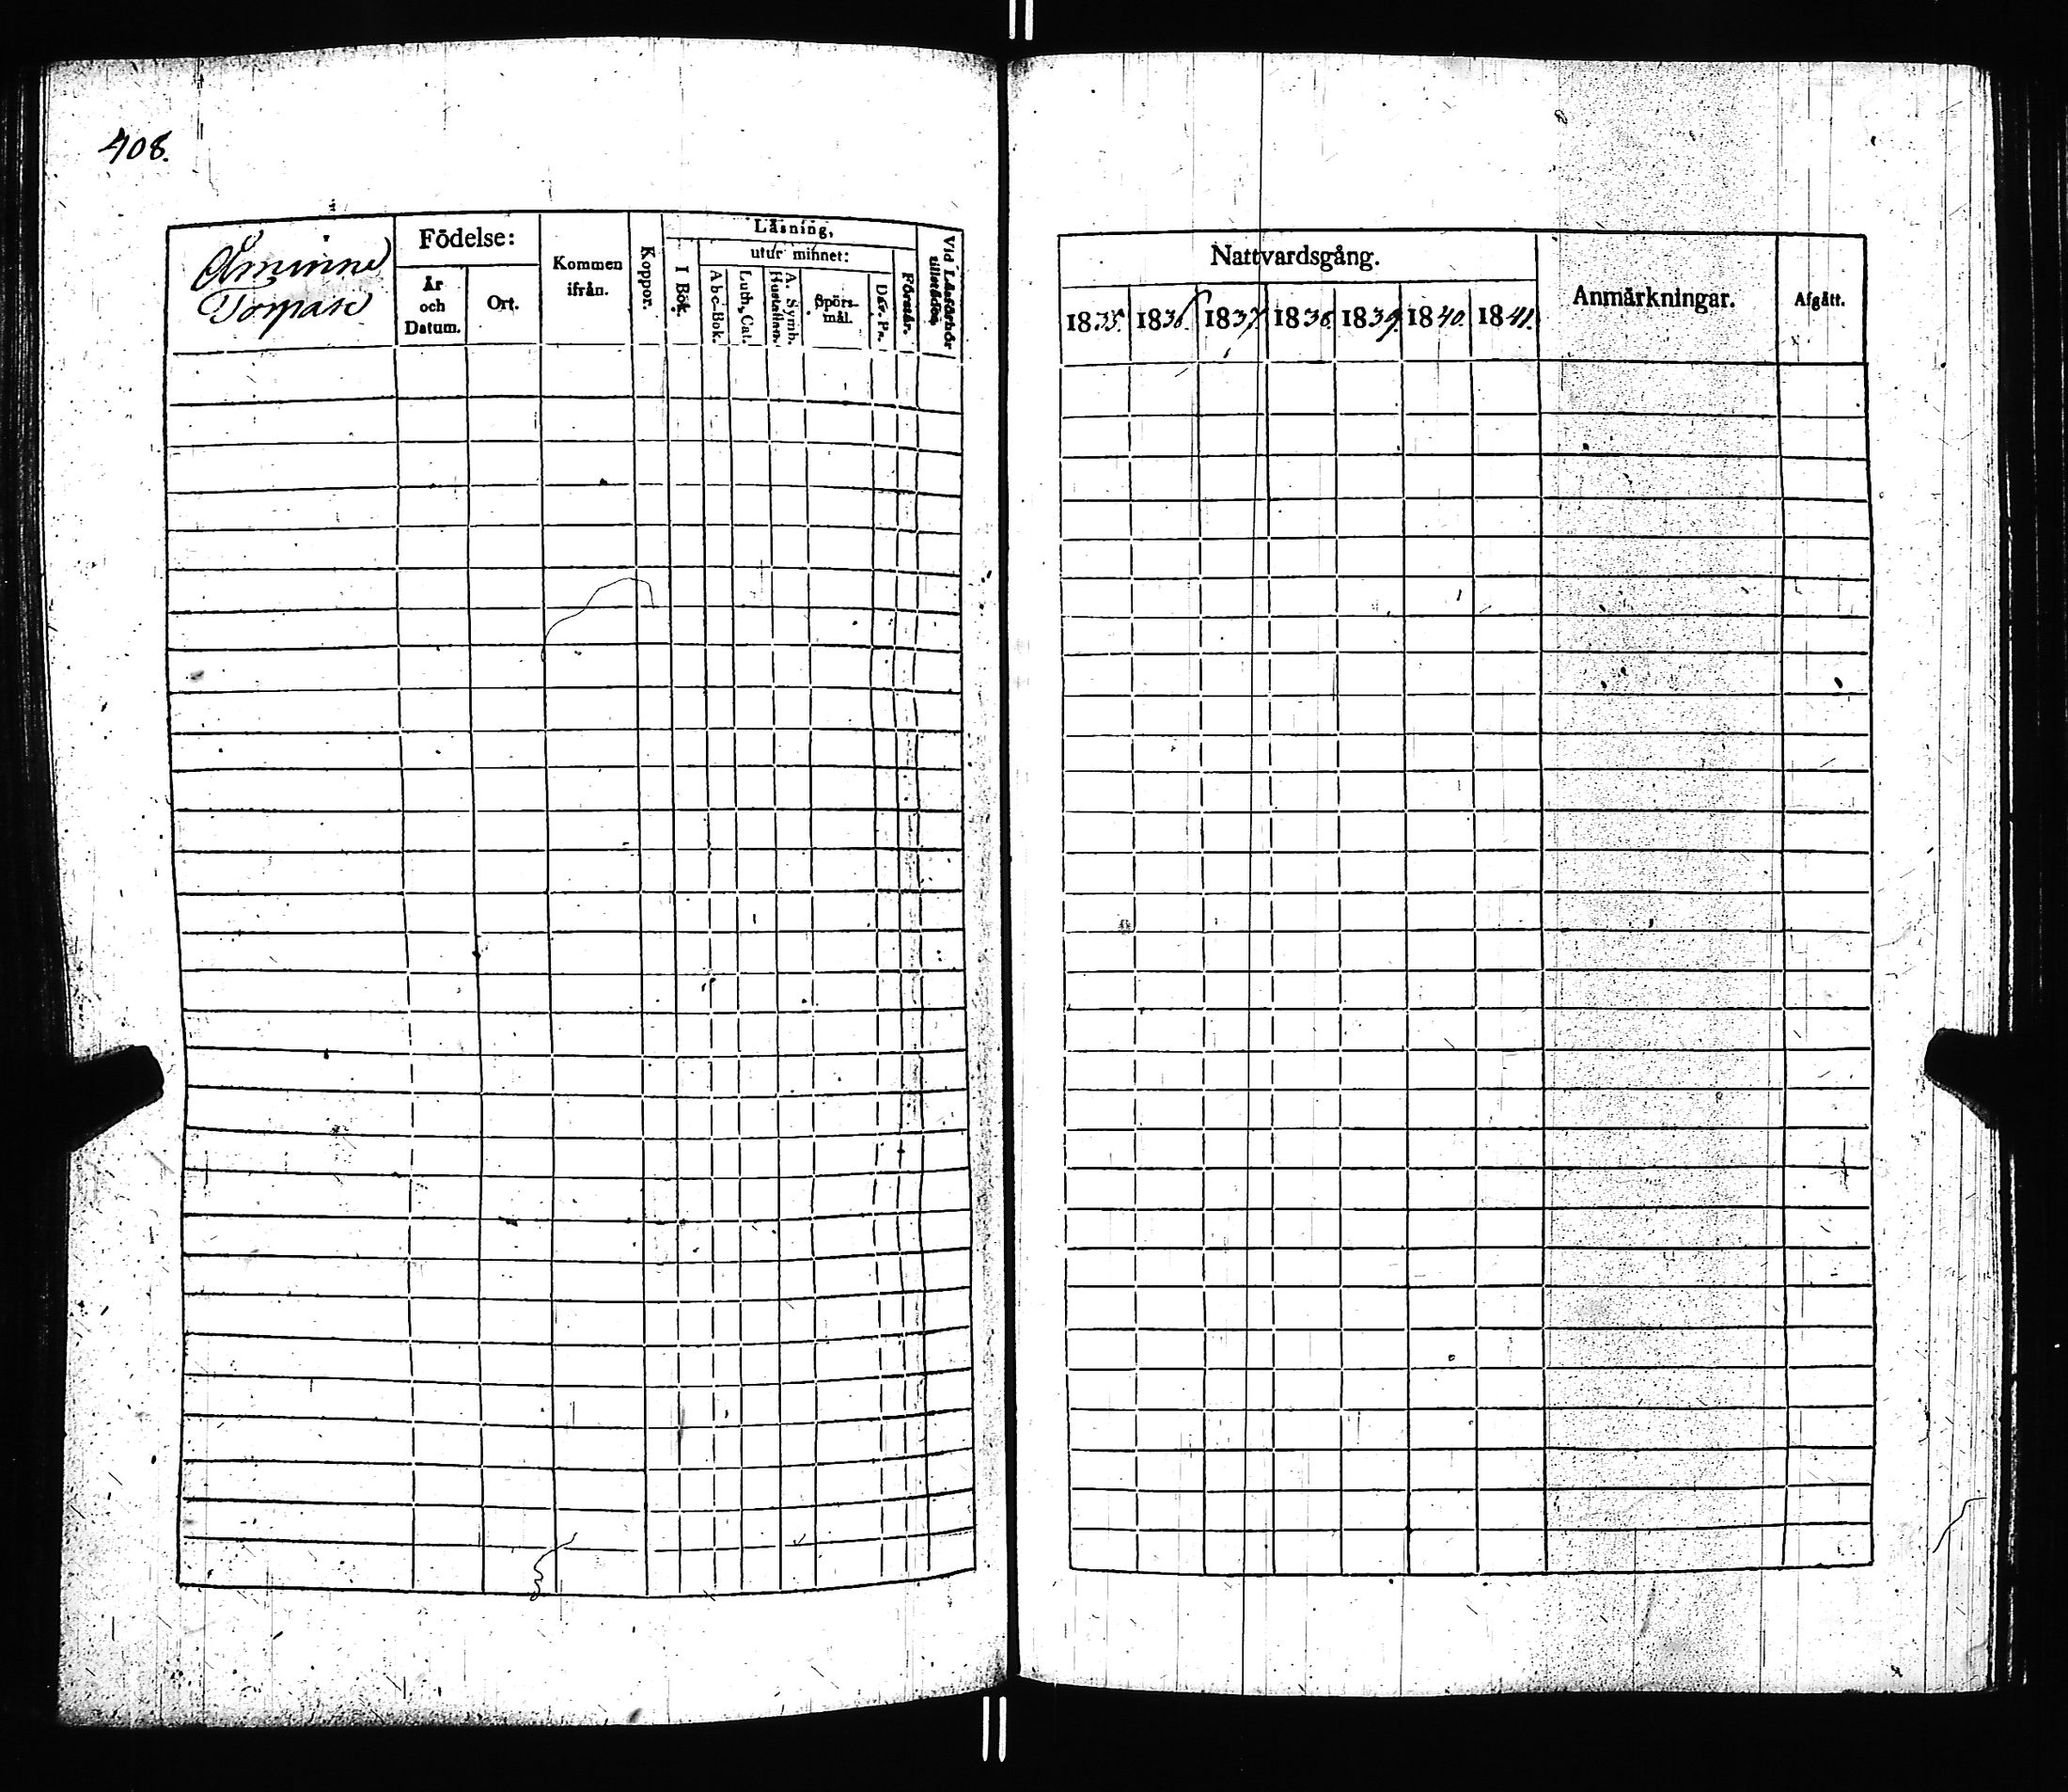 408.
Åminne
Torpare
Födelse:
År
och
Datum.
Ort.
Kommen
ifrån.
Koppor.
Läsning,
I Bok.
utur minnet:
Abc-Bok.
Luth. Cat.
A. Symb.
Hustaflan.
Spörs-
mål.
Dav. Ps.
Förstår.
Vid Läsförhör
tillstädes.
Nattvardsgång.
1835. 1836. 1837. 1838. 1839. 1840. 1841.
Anmärkningar.
Afgått.